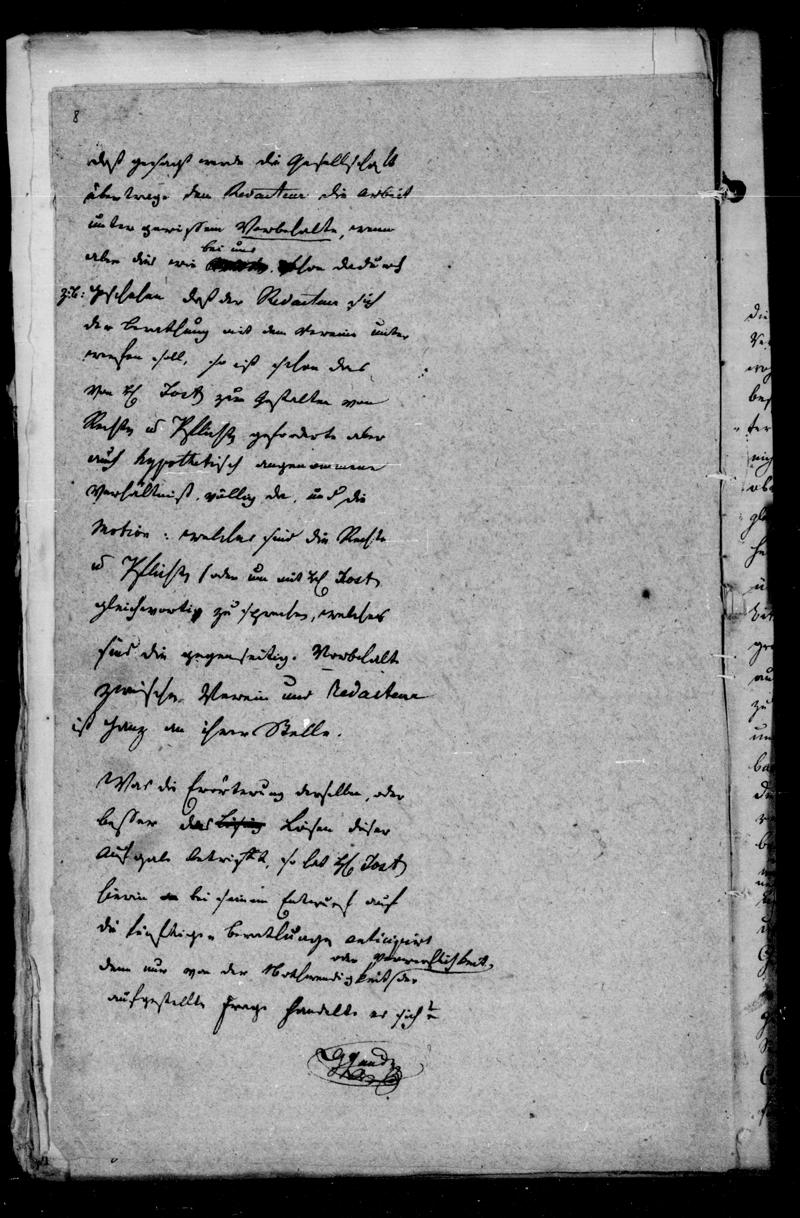 8
daß gesagt werde die Gesellschaft
übertrage dem Redacteur die Arbeit
unter gewissem Vorbehalte, wenn
bei uns
aber dies wie schon dadurch
z.B: geschehen daß der Redacteur sich
der Berathung mit dem Vereine unter
werfen soll, so ist schon das
von H Jost zum Gestalten von
Rechte u Pflichte geforderte aber
auch hypothetisch angenommene
Verhältniß, völlig da, und die
Motion: welches sind die Rechte
u Pflichte (oder um mit H Jost
gleichwortig zu sprechen, welches
sind die gegenseitige Vorbehalte
zwischen Verein und Redacteur
ist ganz an ihrer Stelle.
Was die Erörterung derselben, oder
besser das Lösen dieser
Aufgabe betrifft, so hat H Jost
hierin bei seinem Entwurf auf
die künftige Berathungen anticipirt
oder Verwerflichkeit
denn nur von der Nothwendigkeit der
aufgestellte Frage handelte es sich